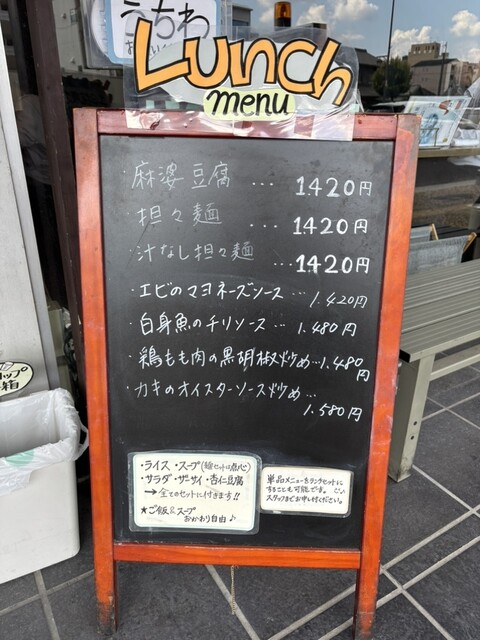 うちわ
Lunch
menu
・麻婆豆腐 … 1420円
・担々麺 … 1420円
・汁なし担々麺 …1420円
・エビのマヨネーズソース … 1.420円
・白身魚のチリソース … 1.480円
・鶏もも肉の黒胡椒炒め…1.480円
・カキのオイスターソース炒め…
1.580円
・ライス ・スープ(麺セットは点心)
・サラダ ・ザーサイ ・杏仁豆腐
→全てのセットに付きます!!
★ご飯&スープ
おかわり自由♪
単品メニューをランチセットに
することも可能です。
スタッフまでお申し付けください。
ップ
箱